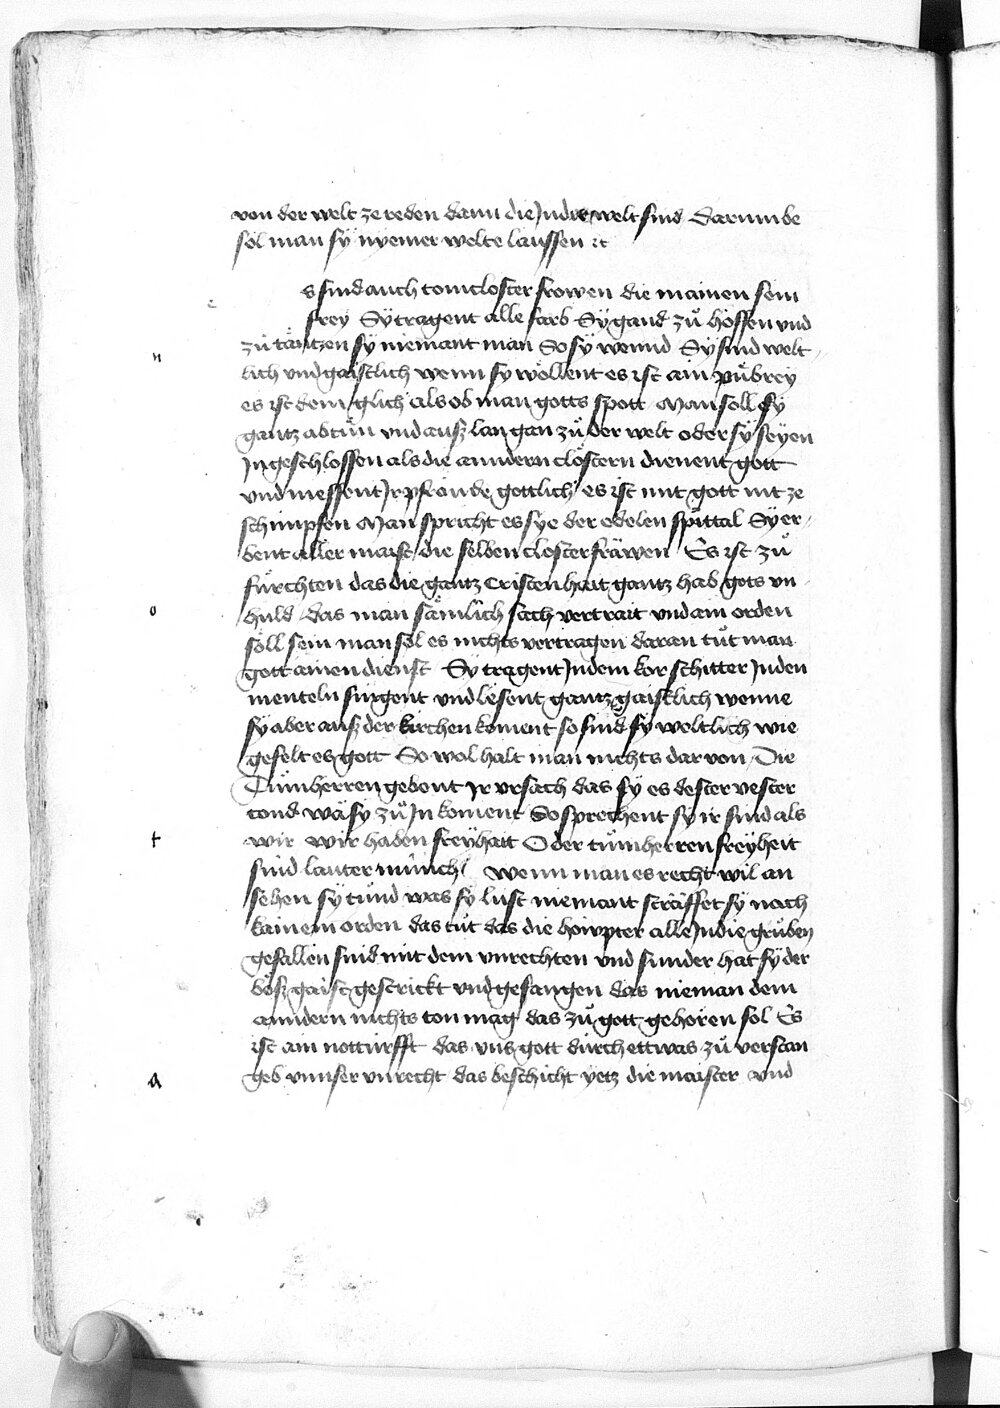 von der welt ze reden dann die Jn der welt sind darumb
sol man sÿ nyemer welte laussen ꝛc
s sind auch tomcloster frowen die mainen sein
e
frey Sÿ tragent alle farb Sÿ gand zů höffen vnd
zů täntzen sÿ niemant man So sÿ wennd Sÿ sind welt
n
lich vnd gaistlich wenn sy wöllent es ist ain půbrey
es ist dem glich als ob man gotts spott Man soll sÿ
gantz abtůn vnd auß lan gan zů der welt oder sÿ seyen
Jngeschlossen als die anndern clöstern dienent gott
vnd niessent Jr pfrönde gottlich es ist mit gott nit ze
schimpfen Man spricht es sye der edelen spittal Sÿ er
bent aller maist die selben closterfräwen Es ist zů
fürchten das die gantz Cristenhait gantz hab gots vn
huld das man sämlich sach vertrait vnd ain orden
o
söll sein man sol es nichts vertragen daran tůt man
gott ainen dienst Sÿ tragent Jn dem kor schitter Jn den
menteln singent vnd lesent gantz gaistlich wenne
sÿ aber auß der kirchen koment so sind sÿ weltlich wie
gefelt es gott So wol halt man nichts dar von Die
Tůmherren gebent Jr vrsach das sÿ es dester vester
tond wä sy zů Jn koment So sprechent sy ir sind als
wir wir haben freyhait Oder tůmherren freyheit
t
sind lauter münch wenn man es recht wil an
sehen sy tůnd was sy lust niemant sträffet sy nach
kainem orden das tůt das die höwpter alle Jn die grůben
gefallen sind mit dem vnrechten vnd sunder hat sÿ der
böß gaist gestrickt vnd gefangen das nieman dem
anndern nichts ton mag das zů gott gehören sol Es
ist ain notturfft das vns gott durch ettwas zů verstan
geb vnnser vnrecht das beschicht yetz die maister vnd
a